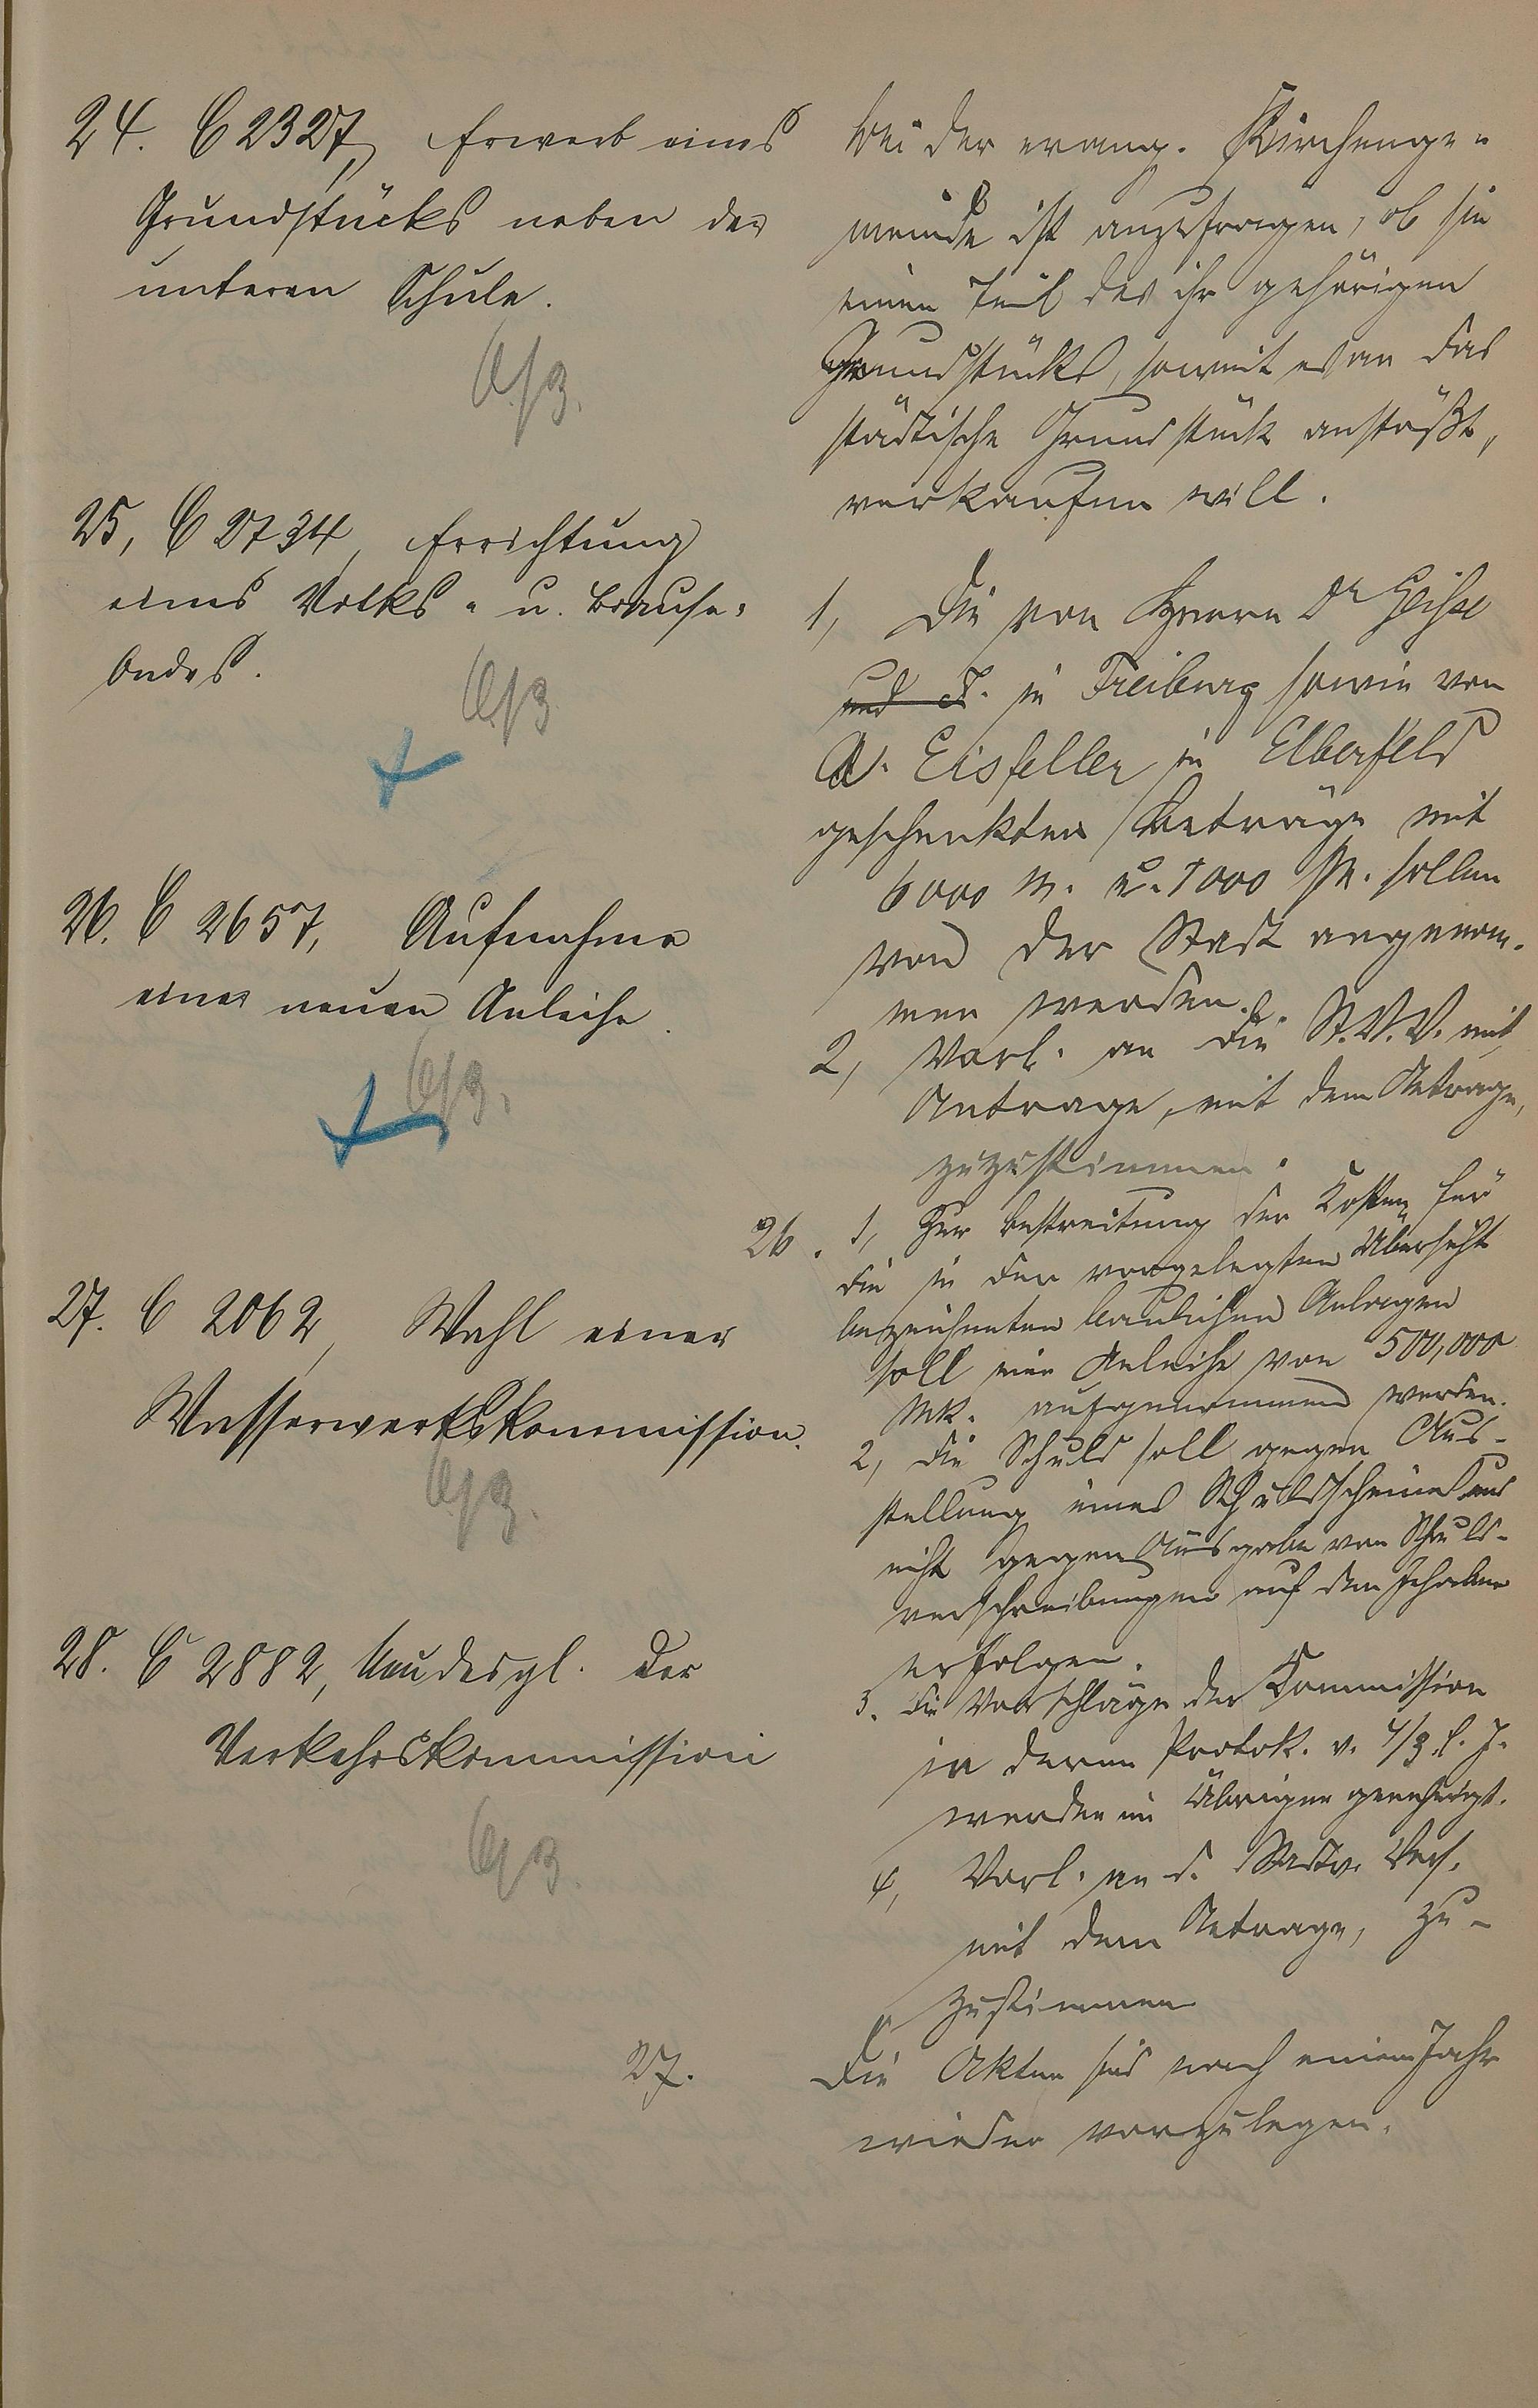 24. C 2327, Erwerb eines
Grundstücks neben der
unteren Schule.
6/3.
25, C 2734, Errichtung
eines Volks- u. Brause-
bades.
6/3
26. C 2657, Aufnahme
einer neuen Anleihe.
6/3.
27. C 2062, Wahl einer
Wasserwerkskommission.
6/3.
28. C 2882, desgl. der
Verkehrskommission
6/3.
Bei der evang. Kirchenge-
meinde ist anzufragen, ob sie
einen Teil des ihr gehörigen
Grundstücks, soweit es an das
städtische Grundstück anstößt,
verkaufen will.
1, Die von Herrn Dr
und F. in Freiburg sowie von
A. Eisfeller in Elberfeld
geschenkten Beträge mit
6000 M. u. 1000 M. sollen
von der Stadt angenom-
men werden.
2, Vorl. an die St.V.V. mit
Antrage, mit dem Antrage,
zuzustimmen.
26. 1, Zur Bestreitung der Kosten für
die in der vorgelegten Übersicht
bezeichneten baulichen Anlagen
soll eine Anleihe von 500,000
Mk. aufgenommen werden.
2, Die Schuld soll gegen Aus-
stellung eines Schuldscheines und
nicht gegen Ausgabe von Schuld-
verschreibungen auf den Inhaber
erfolgen.
3. Die Vorschläge der Kommission
in deren Protok. v. 4/3. l. J.
werden im Übrigen genehmigt.
4, Vorl. an d. Stadtv. Vers.
mit dem Antrage, zu-
zustimmen
27. Die Akten sind nach einem Jahr
wieder vorzulegen.